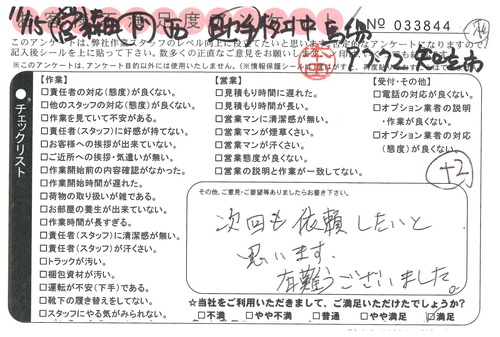 足度
No 033844
このアンケートは、弊社作業スタッフのレベル向上に役立てたいと思いますので、
※このアンケートは、アンケート目的以外には使用いたしません。
チェックリスト
【作業】
□責任者の対応(態度)が良くない。
□他のスタッフの対応(態度)が良くない。
□作業を見ていて不安がある。
□責任者(スタッフ)に好感が持てない。
□お客様への挨拶が出来ていない。
□ご近所への挨拶・気遣いが無い。
□作業開始前の内容確認がなかった。
□作業開始時間が遅れた。
□荷物の取り扱いが雑である。
□お部屋の養生が出来ていない。
□作業時間が長すぎる。
□責任者(スタッフ)に清潔感が無い。
□責任者(スタッフ)が汗くさい。
□トラックが汚い。
□梱包資材が汚い。
□運転が不安(下手)である。
□靴下の履き替えをしてない。
□スタッフにやる気がみられない。
【営業】
□見積もり時間に遅れた。
□見積もり時間が長い。
□営業マンに清潔感が無い。
□営業マンが煙草くさい。
□営業マンが汗くさい。
□営業態度が良くない。
□営業の説明と作業が一致してない。
【受付・その他】
□電話の対応が良くない。
□オプション業者の説明
・作業が良くない。
□オプション業者の対応
(態度)が良くない。
+2
その他、ご意見・ご要望等ありましたらお書き下さい。
次回も依頼したいと
思います。
有難うございました。
☆当社をご利用いただきまして、ご満足いただけたでしょうか?
□不満 □やや不満 □普通 □やや満足 ☑満足